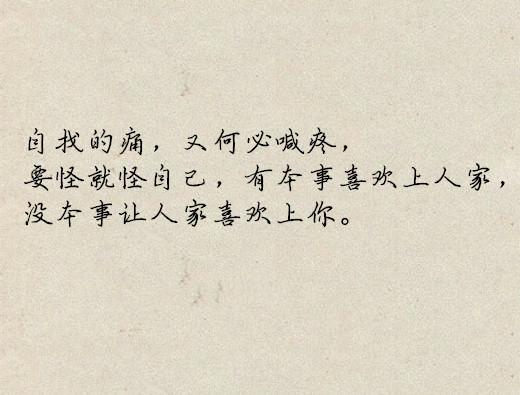 自找的痛，又何必喊疼，
要怪就怪自己，有本事喜欢上人家，
没本事让人家喜欢上你。